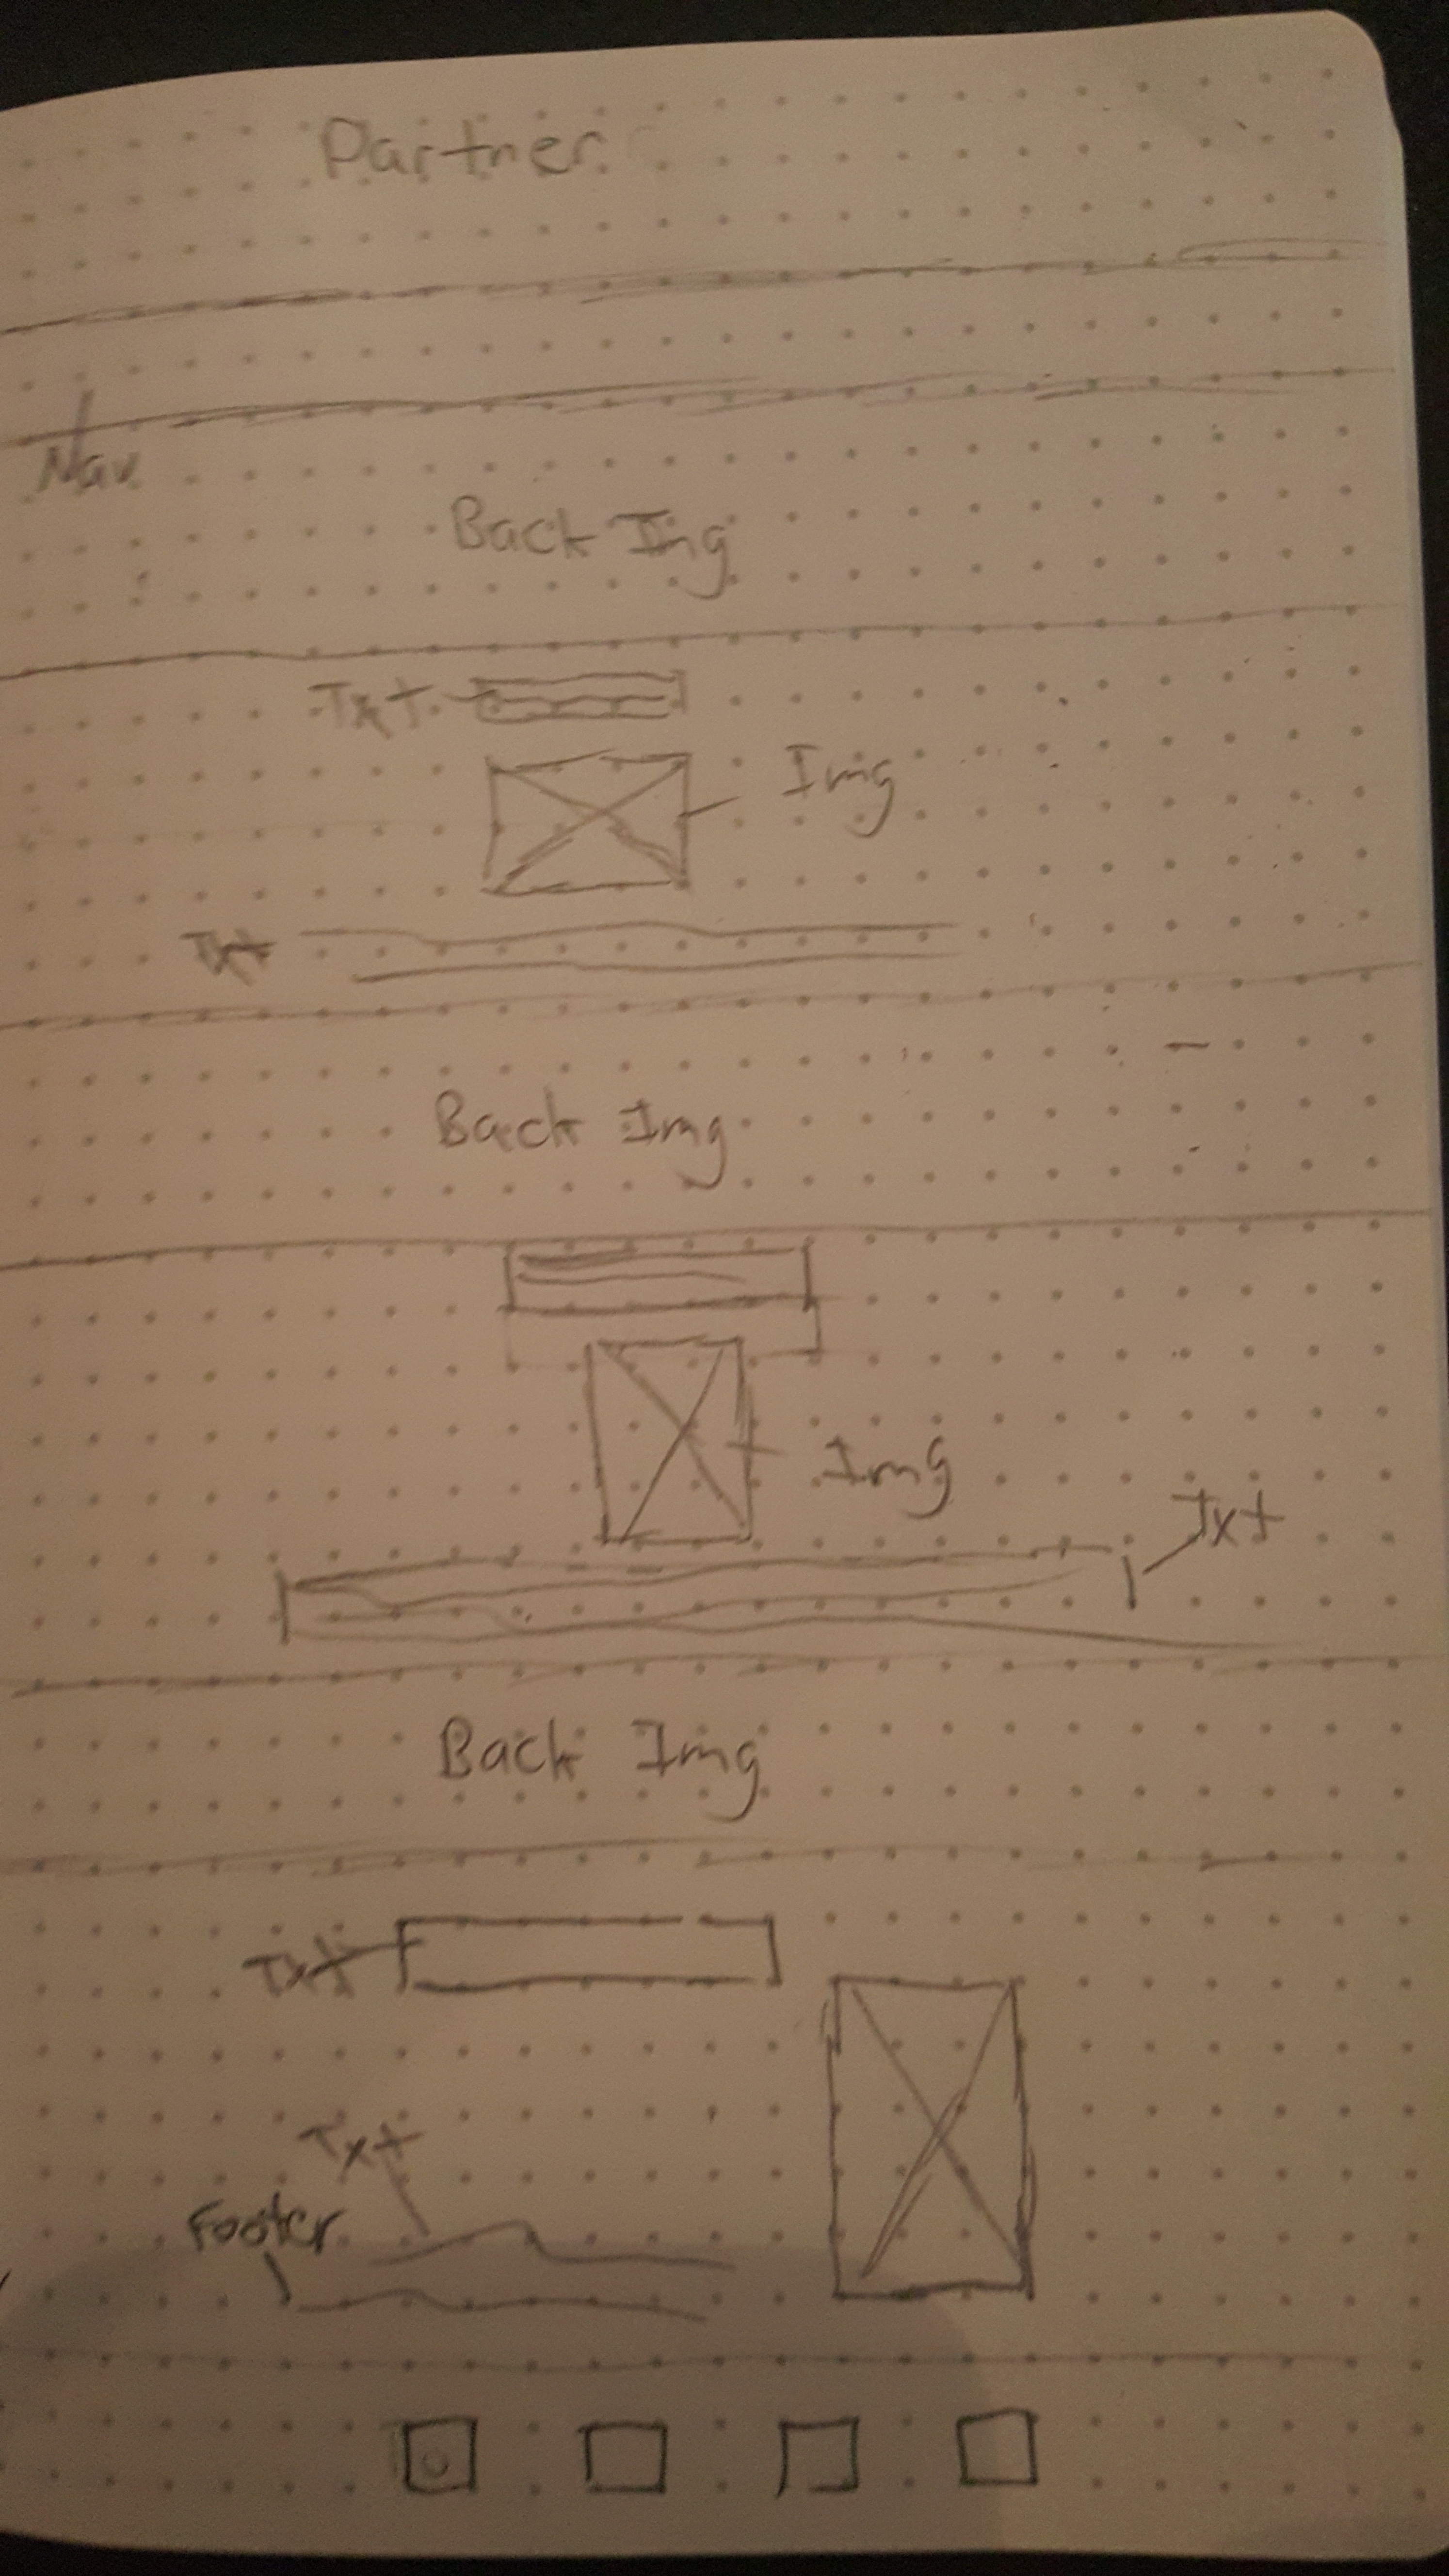 Partner
Nav
Back Img
Txt
Img
Txt
Back Img
Img
Txt
Back Img
Txt
Txt
Footer